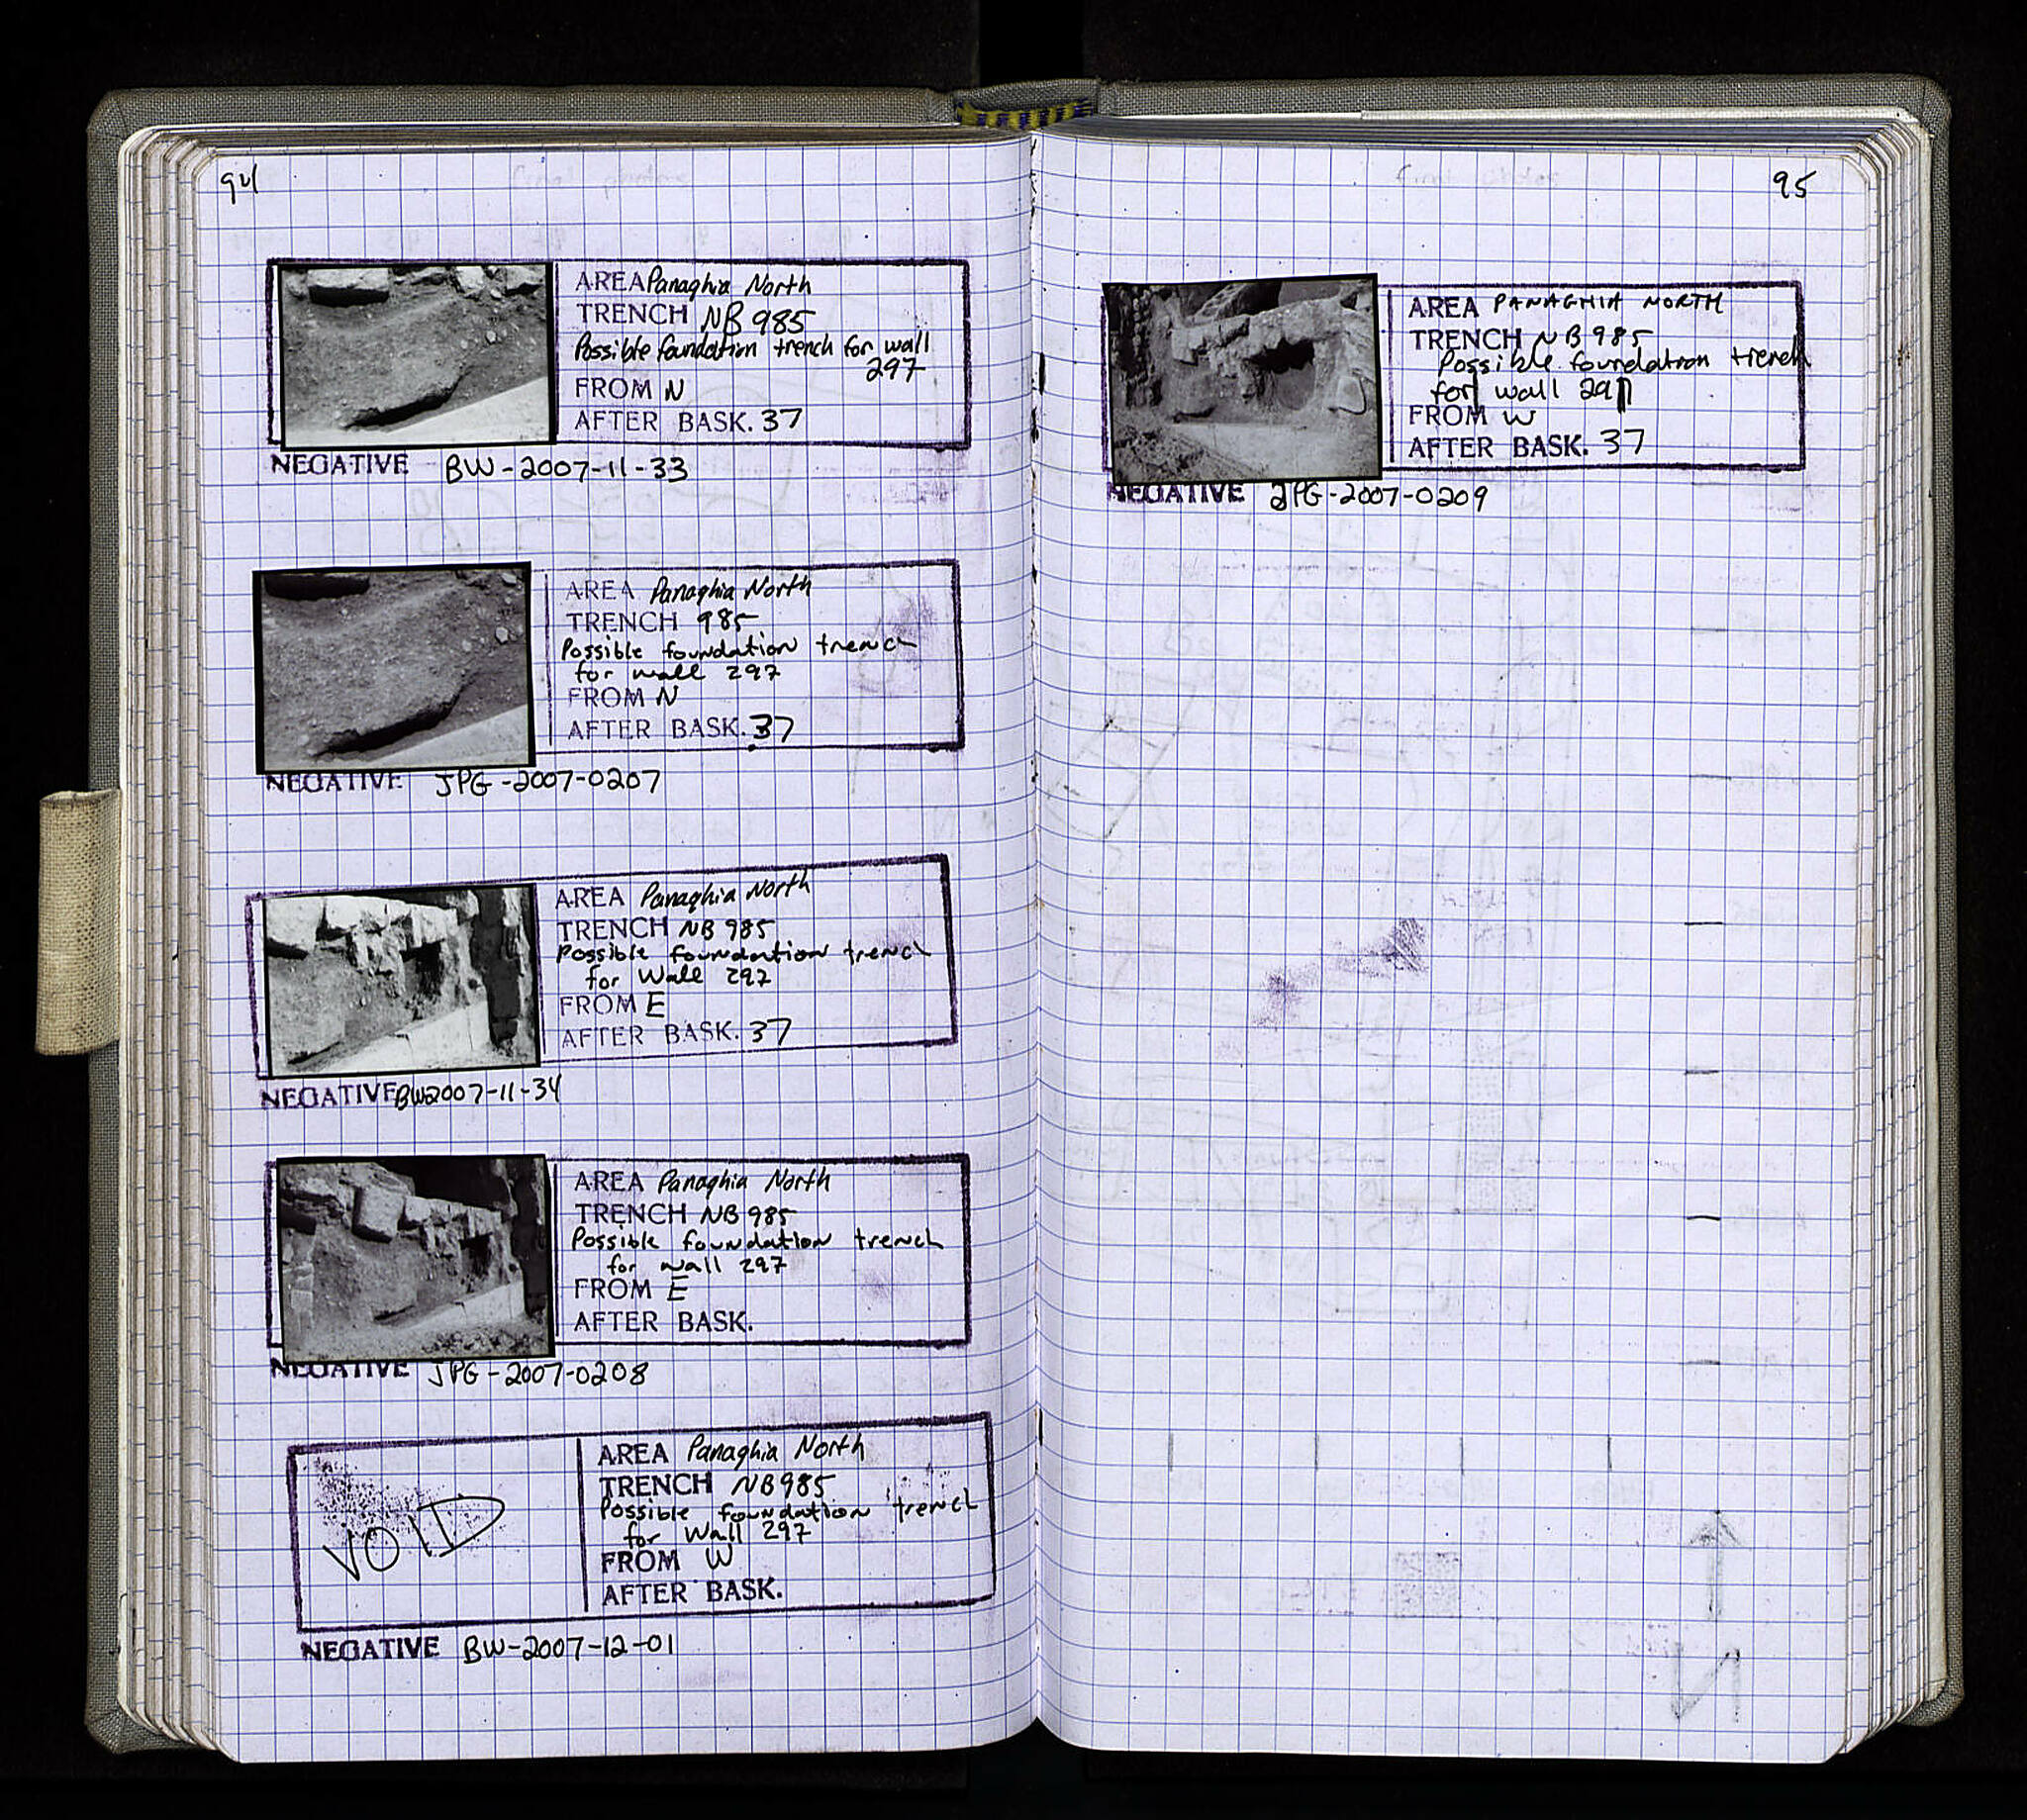 94
AREA Panaghia North
TRENCH NB 985
Possible foundation trench for wall
297
FROM N
AFTER BASK. 37
NEGATIVE BW-2007-11-33
AREA Panaghia North
TRENCH 985
Possible foundation trench
for wall 297
FROM N
AFTER BASK. 37
NEGATIVE JPG-2007-0207
AREA Panaghia North
TRENCH NB 985
Possible foundation trench
for Wall 297
FROM E
AFTER BASK. 37
NEGATIVE BW2007-11-34
AREA Panaghia North
TRENCH NB 985
Possible foundation trench
for wall 297
FROM E
AFTER BASK.
NEGATIVE JPG-2007-0208
VOID
AREA Panaghia North
TRENCH NB985
Possible foundation trench
for Wall 297
FROM W
AFTER BASK.
NEGATIVE BW-2007-12-01
95
AREA PANAGHIA NORTH
TRENCH NB 985
Possible foundation trench
for wall 297
FROM W
AFTER BASK. 37
NEGATIVE JPG-2007-0209